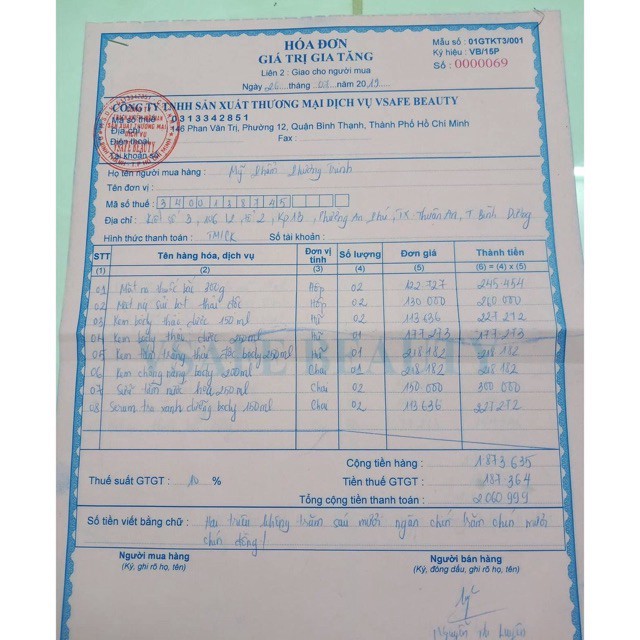 HÓA ĐƠN
GIÁ TRỊ GIA TĂNG
Liên 2 : Giao cho người mua
Ngày 26 tháng 03 năm 2019
Mẫu số : 01GTKT3/001
Ký hiệu : VB/15P
Số : 0000069
CÔNG TY TNHH SẢN XUẤT THƯƠNG MẠI DỊCH VỤ VSAFE BEAUTY
Mã số thuế 0313342851
Địa chỉ 146 Phan Văn Trị, Phường 12, Quận Bình Thạnh, Thành Phố Hồ Chí Minh
Điện thoại Fax :
Tài khoản số
VSAFE BEAUTY
Họ tên người mua hàng : Mỹ Phẩm
Tên đơn vị :
Mã số thuế : 3401018745
Địa chỉ : Kp 1B Phường An Phú, TX Thuận An, T Bình Dương
Hình thức thanh toán : TM/CK Số tài khoản :
STT Tên hàng hóa, dịch vụ Đơn vị tính Số lượng Đơn giá Thành tiền
(1) (2) (3) (4) (5) (6) = (4) x (5)
01 Mặt nạ thuốc bắc 200g Hộp 02 122 727 245 454
02 Mặt nạ sủi bọt thải độc Hộp 02 130 000 260 000
03 Kem body thảo dược 150ml Hũ 02 113 636 227 272
04 Kem body thảo dược 250ml Hũ 01 177 273 177 273
05 Kem tắm trắng thảo dược body 250ml Hũ 01 218 182 218 182
06 Kem chống nắng body 200ml Chai 01 218 182 218 182
07 Sữa tắm nước hoa 250ml Chai 02 150 000 300 000
08 Serum trà xanh dưỡng body 150ml Chai 02 113 636 227 272
VSAFE BEAUTY
Cộng tiền hàng : 1 873 635
Thuế suất GTGT : 10 % Tiền thuế GTGT : 187 364
Tổng cộng tiền thanh toán : 2 060 999
Số tiền viết bằng chữ : Hai triệu không trăm sáu mươi ngàn chín trăm chín mươi
chín đồng!
Người mua hàng
(Ký, ghi rõ họ, tên)
Người bán hàng
(Ký, đóng dấu, ghi rõ họ, tên)
Nguyễn Thị